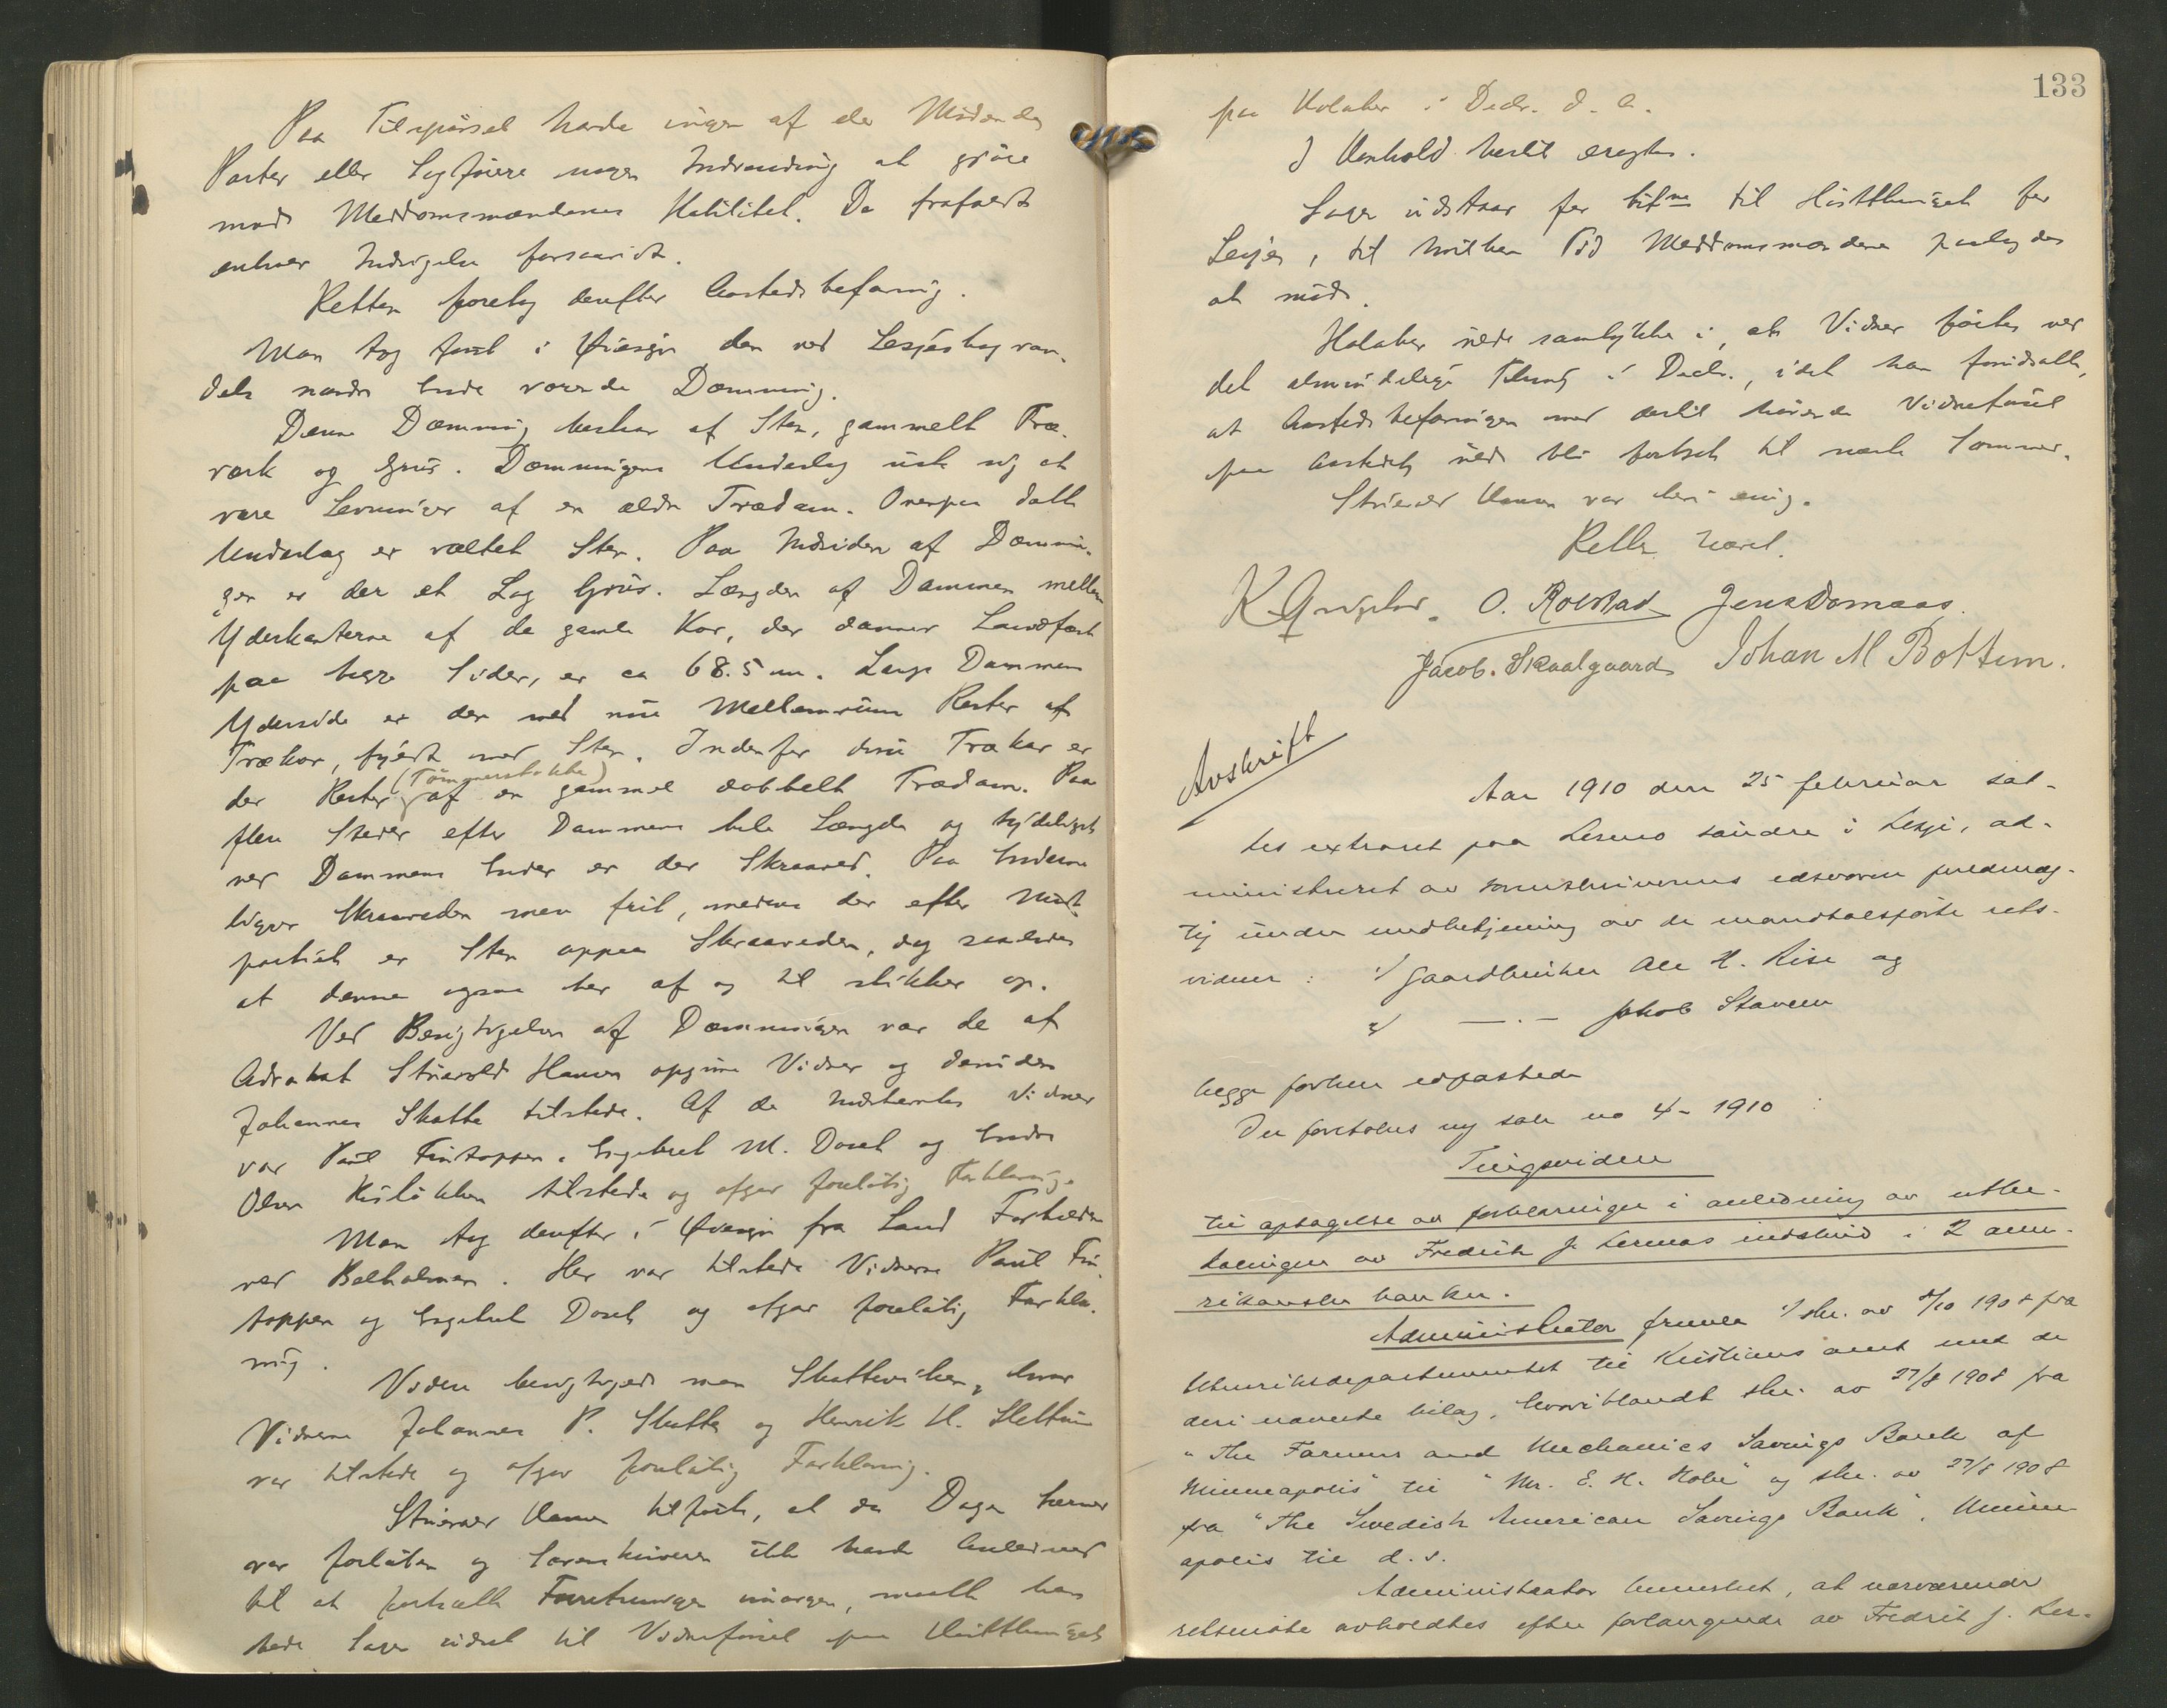 Paa Tilspørsel havde ingen af de Mødende
Parter eller Sagførere nogen Indvending at gjøre
mod Meddomsmændenes Habilitet. De frafaldt
enhver Indsigelse forsaavidt.
Retten foretog derefter Aastedsbefaring.
Man tog først i Øiesyn den ved Lesjeskogvan-
dets nordre Ende værende Dæmning.
Denne Dæmning bestaar af Sten, gammelt Træ-
værk og Grus. Dæmningens Underlag viste sig at
være Levninger af en ældre Trædam. Ovenpaa dette
Underlag er væltet Sten. Paa Indsiden af Dæmnin-
gen er der et Lag Grus. Længden af Dammen mellem
Yderkanterne af de gamle Kar, der danner Landfæst
paa begge Sider, er ca 68.5 m. Langs Dammens
Yderside er der med mellemrum Rester af
Trækar, fyldt med Sten. Indenfor disse Trækar er
der Rester (Tømmerstokke) af en gammel dobbelt Trædam. Paa
flere Steder efter Dammens hele Længde og tydeligst
ved Dammens Ender er der Skraaved. Paa Enderne
ligger Skraaveden mere frit, medens der efter Midt-
partiet er Sten oppaa Skraaveden, dog saaledes
at denne ogsaa her af og til stikker op.
Ved Besigtigelsen af Dæmningen var de af
Advokat Stuevold Hansen opgivne Vidner og desuden
Johannes Skotte tilstede. Af de Indstevnte Vidner
var Paul Fintoppen, Engebret M. Doset og Endre
Olsen tilstede og afgav foreløbig Forklaring.
Man tog derefter i Øiesyn fra Land Forholdene
ved Bolholmen. Her var tilstede Vidnerne Paul Fin-
toppen og Engebret Doset og afgav foreløbig Forkla-
ring.
Videre besigtigede man Skotteviken, hvor
Vidnerne Johannes P. Skotte og Henrik H. Slettum
var tilstede og afgav foreløbig Forklaring.
Stuevold Hansen tilførte, at da Dagen hermed
var forløben og Sorenskriveren ikke havde Anledning
til at fortsætte Forretningen imorgen, maatte han
bede Sagen udsat til Vidneførsel paa Høstthinget
133
paa Holaker i Decbr. d. A.
I Henhold hertil eragtes.
Sagen udstaar for bitne til Høstthinget for
Lesje, til hvilken Tid Meddomsmændene paalægdes
at møde.
Holaker vilde samtykke i, at Vidner førtes ved
det almindelige Thing i Decbr., idet han forudsatte,
at Aastedsbefaringen med dertil hørende Vidneførsel
paa Aastedet vilde bli fortsat til næste Sommer.
Stuevold Hansen var heri enig.
Retten hævet.
O. Rolstad Jens Domaas.
Jacob. Skaalgaard Johan M Bottem.
Avskrift
Aar 1910 den 25 februar sat-
tes extraret paa Lesmo søndre i Lesje, ad-
ministreret av sorenskriverens edsvorne fuldmæg-
tig under medbetjening av de mandtalsførte rets-
vidner: 1/ Gaardbruker Ole H. Lise og
2/ —.— Jakob Stavem
begge forhen edfæstede
Der foretoges ny sak no 4 - 1910:
Tingsvidne
til optagelse av forklaringer i anledning av utbe-
talinger av Fredrik J. Lesmos indskud i 2 ame-
rikanske banker.
Administrator fremla 1/ skr. av /10 1908 fra
Utenriksdepartementet til Kristians amt med de
deri nævnte bilag, hvoriblandt skr. av 27/8 1908 fra
"The Farmers and Mechanics Savings Bank of
Minneapolis" til "Mr. E. H. Hobe" og skr. av 27/8 1908
fra "The Swedish American Savings Bank", Minne
apolis til d. s.
Administrator bemerket, at nærværende
retsmøte avholdtes efter forlangende av Fredrik J. Les-